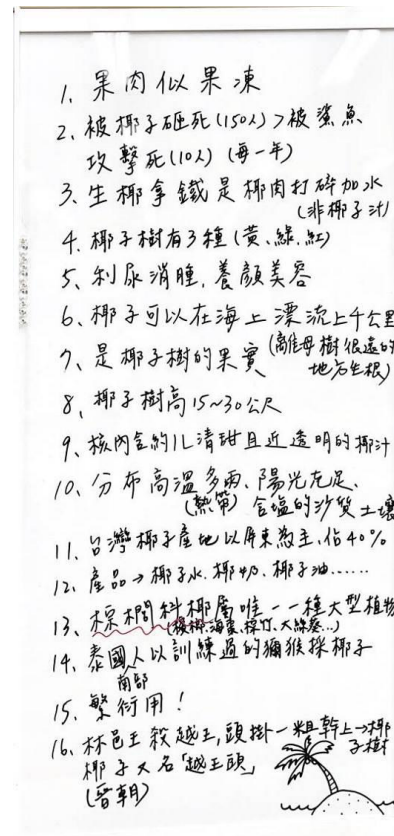 1. 果肉似果凍
2. 被椰子砸死(150人)>被鯊魚
攻擊死(10人)(每一年)
3. 生椰拿鐵是椰肉打碎加水
(非椰子汁)
4. 椰子樹有3種(黃、綠、紅)
5. 利尿消腫,養顏美容
6. 椰子可以在海上漂流上千公里
(離母樹很遠的
地方生根)
7. 是椰子樹的果實
8. 椰子樹高15~30公尺
9. 核內含約1L清甜且近透明的椰汁
10. 分布高溫多雨、陽光充足、
(熱帶) 含塩的沙質土壤
11. 台灣椰子產地以屏東為主,佔40%
12. 產品→椰子水.椰奶.椰子油……
13. 棕櫚科椰屬唯一一種大型植物
(檳榔.海棗.棕竹.大絲葵...)
14. 泰國人以訓練過的獼猴採椰子
南部
15. 繁衍用!
16. 林邑王殺越王,頭掛一粗幹上→椰
子樹
椰子又名「越王頭」
(晉朝)